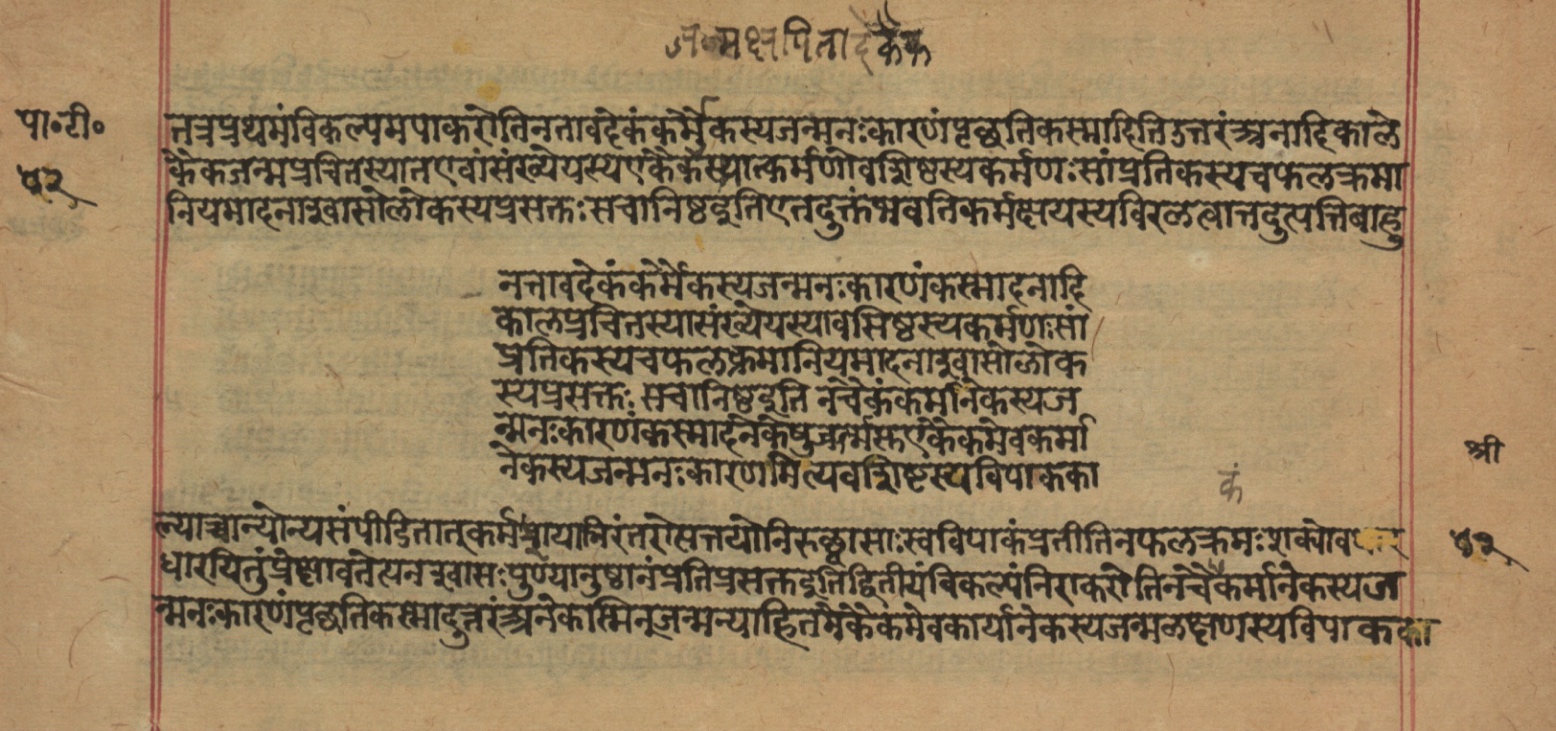 जन्मक्षपितादेकैक
पा॰टी॰
५२
तत्रप्रथमंविकल्पमपाकरोतिनतावदेकंकर्मैकस्यजन्मनःकारणंपृछतिकस्मादितिउत्तरंअनादिकाले
कैकजन्मप्रचितस्यातएवासंख्येयस्यएकैकस्यात्कर्मणोवशिष्ठस्यकर्मणःसांप्रतिकस्यचफलक्रमा
नियमादनाश्वासोलोकस्यप्रसक्तःसचानिष्ठइतिएतदुक्तंभवतिकर्मक्षयस्यविरलत्वात्तदुत्पत्तिबाहु
नतावदेकंकर्मैकस्यजन्मनःकारणंकस्मादनादि
कालप्रचितस्यासंख्येयस्यावसिष्ठस्यकर्मणःसां
प्रतिकस्यचफलक्रमानियमादनाश्वासोलोक
स्यप्रसक्तः सचानिष्ठइति नचैकंकर्मानेकस्यज
न्मनःकारणंकस्मादनेकेषुजन्मस्तएकैकमेवकर्मा
नेकस्यजन्मनःकारणमित्यवशिष्टस्यविपाकका
कं
श्री
ल्याच्चान्योन्यसंपीडितातत्कर्मप्रायानिरंतरोसत्तयोनिरुछ्वासाःस्वविपाकंप्रतीतिनफलक्रमःशक्योव
५२
धारयितुंप्रेक्षावतेत्यनश्वासःपुण्यानुष्ठानंप्रतिप्रसक्तइतिद्वितीयंविकल्पंनिराकरोतिनचैकैकर्मानेकस्यज
न्मनःकारणंपृछतिकस्मादुत्तरंअनेकास्मिन्जन्मन्याहितमेकैकमेवकार्यानेकस्यजन्मलक्षणस्यविपाकका